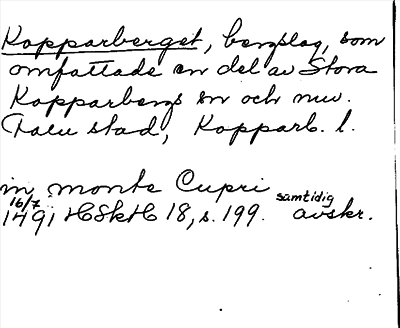 Kopparberget, bergslag, som
omfattade en del av Stora
Kopparbergs sn och nuv.
Falu stad, Kopparb. l.
in monte Cupri
16/7 1491 HSkH 18, s. 199. samtidig avskr.